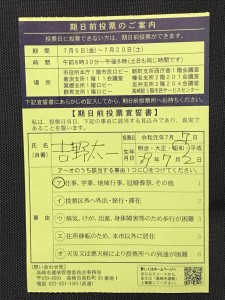 期日前投票のご案内
投票日に投票できない方は、期日前投票ができます。
期間 7月5日(金)～7月20日(土)
時間 午前8時30分～午後8時(土日も同じ時間です)
場所
市役所本庁1階市民ロビー
倉渕支所1階
群馬支所1階ロビー
新町支所庁舎1階会議室
榛名支所2階201会議室
吉井支所2階204会議室
高崎駅市民サービスセンター
下記宣誓書にあらかじめ記入してから、期日前投票所へお持ちください。
【期日前投票宣誓書】
私は、投票日当日、下記の事由に該当する見込みであり、真実で
あることを誓います。
令和元年7月7日
氏名
(自署)
吉野太一
生年月日
明治・大正・昭和・平成
39年7月2日
ア～オのうち該当する事由1つに○をつけてください。
事由
ア 仕事、学業、地域行事、冠婚葬祭、その他
イ 投票区外へ外出・旅行・滞在
ウ 病気、けが、出産、身体障害等のため歩行が困難
エ 住所移転のため、本市以外に居住
オ 天災又は悪天候により投票所への到達が困難
【問い合わせ先】
高崎市選挙管理委員会事務局
高崎市高松町35番地1
詳しくはホームページ